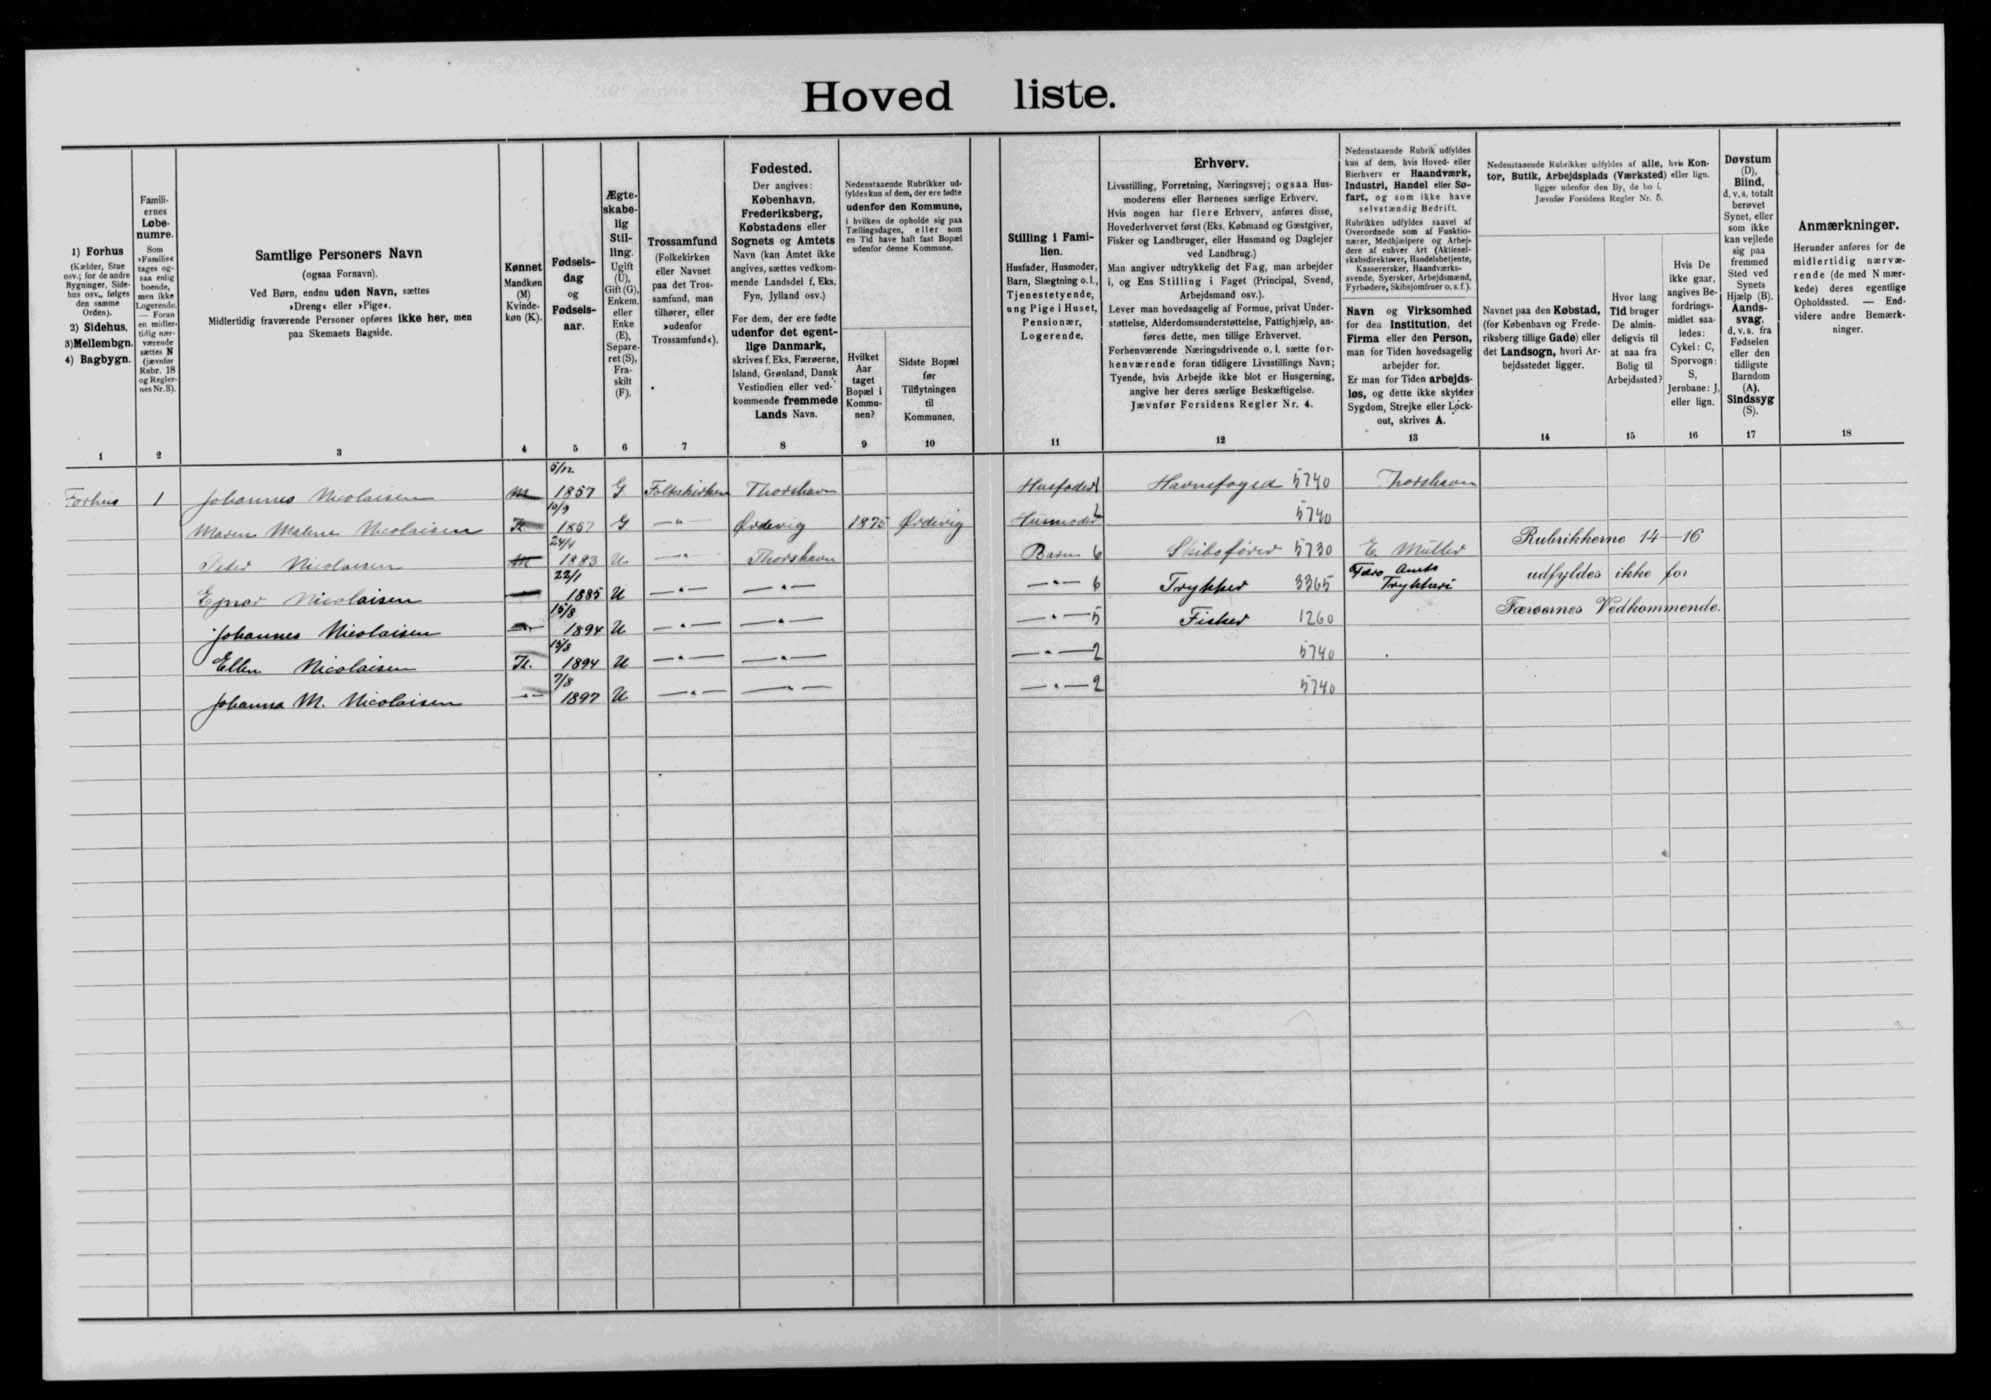 Hovedliste.
1) Forhus
(Kælder, Stue
osv.; for de andre
Bygninger, Side-
hus osv., følges
den samme
Orden).
2) Sidehus,
3) Mellembgn.
4) Bagbygn.
1
Famili-
ernes
Løbe-
numre.
Som
»Familie«
tages og-
saa enlig
boende,
men ikke
Logerende.
— Foran
en midler-
tidig nær-
værende
sættes N
(jævnfør
Rubr. 18
og Regler-
nes Nr. 5).
2
Samtlige Personers Navn
(ogsaa Fornavn).
Ved Børn, endnu uden Navn, sættes
»Dreng« eller »Pige«.
Midlertidig fraværende Personer opføres ikke her, men
paa Skemaets Bagside.
3
Kønnet
Mandkøn
(M)
Kvinde-
køn (K).
4
Fødsels-
dag
og
Fødsels-
aar.
5
Ægte-
skabe-
lig
Stil-
ling.
Ugift
(U),
Gift (G),
Enkem.
eller
Enke
(E),
Separe-
ret (S),
Fra-
skilt
(F).
6
Trossamfund
(Folkekirken
eller Navnet
paa det Tros-
samfund, man
tilhører, eller
»udenfor
Trossamfund«).
7
Fødested.
Der angives:
København,
Frederiksberg,
Købstadens eller
Sognets og Amtets
Navn (kan Amtet ikke
angives, sættes vedkom-
mende Landsdel f. Eks.
Fyn, Jylland osv.)
For dem, der ere fødte
udenfor det egent-
lige Danmark,
skrives f. Eks. Færøerne,
Island, Grønland, Dansk
Vestindien eller ved-
kommende fremmede
Lands Navn.
8
Nedenstaaende Rubrikker ud-
fyldes kun af dem, der ere fødte
udenfor den Kommune,
i hvilken de opholde sig paa
Tællingsdagen, eller som
en Tid have haft fast Bopæl
udenfor denne Kommune.
Hvilket
Aar
taget
Bopæl i
Kommu-
nen?
9
Sidste Bopæl
før
Tilflytningen
til
Kommunen.
10
Stilling i Fami-
lien.
Husfader, Husmoder,
Barn, Slægtning o.l.,
Tjenestetyende,
ung Pige i Huset,
Pensionær,
Logerende.
11
Erhverv.
Livsstilling, Forretning, Næringsvej; ogsaa Hus-
moderens eller Børnenes særlige Erhverv.
Hvis nogen har flere Erhverv, anføres disse,
Hovederhvervet først (Eks. Købmand og Gæstgiver,
Fisker og Landbruger, eller Husmand og Daglejer
ved Landbrug.)
Man angiver udtrykkelig det Fag, man arbejder
i, og Ens Stilling i Faget (Principal, Svend,
Arbejdsmand osv.).
Lever man hovedsagelig af Formue, privat Under-
støttelse, Alderdomsunderstøttelse, Fattighjælp, an-
føres dette, men tillige Erhvervet.
Forhenværende Næringsdrivende o. l. sætte for-
henværende foran tidligere Livsstillings Navn;
Tyende, hvis Arbejde ikke blot er Husgerning,
angive her deres særlige Beskæftigelse.
Jævnfør Forsidens Regler Nr. 4.
12
Nedenstaaende Rubrik udfyldes
kun af dem, hvis Hoved- eller
Bierhverv er Haandværk,
Industri, Handel eller Sø-
fart, og som ikke have
selvstændig Bedrift.
Rubrikkes udfyldes saavel af
Overordnede som af Funktio-
nærer, Medhjælpere og Arbej-
dere af enhver Art (Aktiesel-
skabsdirektører, Handelsbetjente,
Kasserersker, Haandværks-
svende, Syersker, Arbejdsmænd,
Fyrbødere, Skibsjomfruer o. s. f.).
Navn og Virksomhed
for den Institution, det
Firma eller den Person,
man for Tiden hovedsagelig
arbejder for.
Er man for Tiden arbejds-
løs, og dette ikke skyldes
Sygdom, Strejke eller Lock-
out, skrives A.
13
Nedenstaaende Rubrikker udfyldes af alle, hvis Kon-
tor, Butik, Arbejdsplads (Værksted) eller lign.
ligger udenfor den By, de bo i.
Jævnfør Forsidens Regler Nr. 5.
Navnet paa den Købstad,
(for København og Frede-
riksberg tillige Gade) eller
det Landsogn, hvori Ar-
bejdsstedet ligger.
14
Hvor lang
Tid bruger
De almin-
deligvis til
at naa fra
Bolig til
Arbejdssted?
15
Hvis De
ikke gaar,
angives Be-
fordrings-
midlet saa-
ledes:
Cykel: C,
Sporvogn:
S,
Jernbane: J,
eller lign.
16
Døvstum
(D),
Blind,
d. v. s. totalt
berøvet
Synet, eller
som ikke
kan vejlede
sig paa
fremmed
Sted ved
Synets
Hjælp (B).
Aands-
svag,
d. v. s. fra
Fødselen
eller den
tidligste
Barndom
(A).
Sindssyg
(S).
17
Anmærkninger.
Herunder anføres for de
midlertidig nærvæ-
rende (de med N mær-
kede) deres egentlige
Opholdssted. — End-
videre andre Bemærk-
ninger.
18
Forhus 1 Johannes Nicolaisen M 5/12 1857 G Folkekirken Thorshavn Husfader 1 Havnefoged 5740 Thorshavn
Maren Malene Nicolaisen K. 10/9 1857 G —"— Ørdevig 1875 Ørdevig Husmoder 2 5740
Peter Nicolaisen M 24/4 1883 U —"— Thorshavn Barn 6 Skibsfører 5730 E. Müller
Ejnar Nicolaisen 22/1 1885 U —"— —"— —"— 6 Trykker 3365 Færø Amts Trykkeri
Johannes Nicolaisen 15/8 1894 U —"— —"— —"— 5 Fisker 1260
Ellen Nicolaisen K. 15/8 1894 U —"— —"— —"— 2 5740
Johanna M. Nicolaisen —"— 7/8 1897 U —"— —"— —"— 2 5740
Rubrikkerne 14—16
udfyldes ikke for
Færøernes Vedkommende.